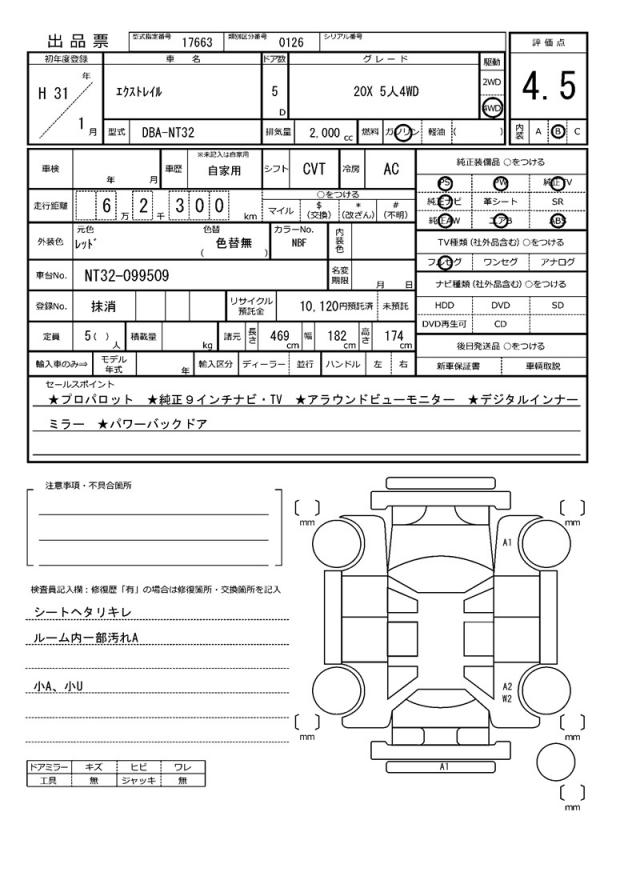 出品票 型式指定番号 17663 類別区分番号 0126 シリアル番号
初年度登録 車 名 ドア数 グレード 駆動 評価点
H 31 年 1 月 エクストレイル 5 D 20X 5人4WD 2WD 4WD 4.5
型式 DBA-NT32 排気量 2,000 cc 燃料 ガソリン 軽油 ( ) 内装 A B C
車検 年 月 車歴 ※未記入は自家用 自家用 シフト CVT 冷房 AC
純正装備品 ○をつける
PS PW 純正TV
純正ナビ 革シート SR
純正AW エアB ABS
走行距離 6 万 2 千 3 0 0 km
○をつける
マイル $ (交換) * (改ざん) # (不明)
外装色 元色 レッド 色替 ( 色替無 ) カラーNo. NBF 内装色
TV種類 (社外品含む) ○をつける
フルセグ ワンセグ アナログ
車台No. NT32-099509 名変期限 月 日
ナビ種類 (社外品含む) ○をつける
HDD DVD SD
DVD再生可 CD
登録No. 抹消 リサイクル預託金 10,120円預託済 未預託
定員 5( ) 人 積載量 kg 諸元 長さ 469 cm 幅 182 cm 高さ 174 cm
後日発送品 ○をつける
新車保証書 車輌取説
輸入車のみ⇒ モデル年式 年 輸入区分 ディーラー 並行 ハンドル 左 右
セールスポイント
★プロパロット ★純正9インチナビ・TV ★アラウンドビューモニター ★デジタルインナー
ミラー ★パワーバックドア
注意事項・不具合箇所
検査員記入欄：修復歴「有」の場合は修復箇所・交換箇所を記入
シートヘタリキレ
ルーム内一部汚れA
小A、小U
ドアミラー キズ ヒビ ワレ
工具 無 ジャッキ 無
〔 〕 mm 〔 〕 mm
A1
A2
W2
〔 〕 mm 〔 〕 mm
A1
〔 〕 mm